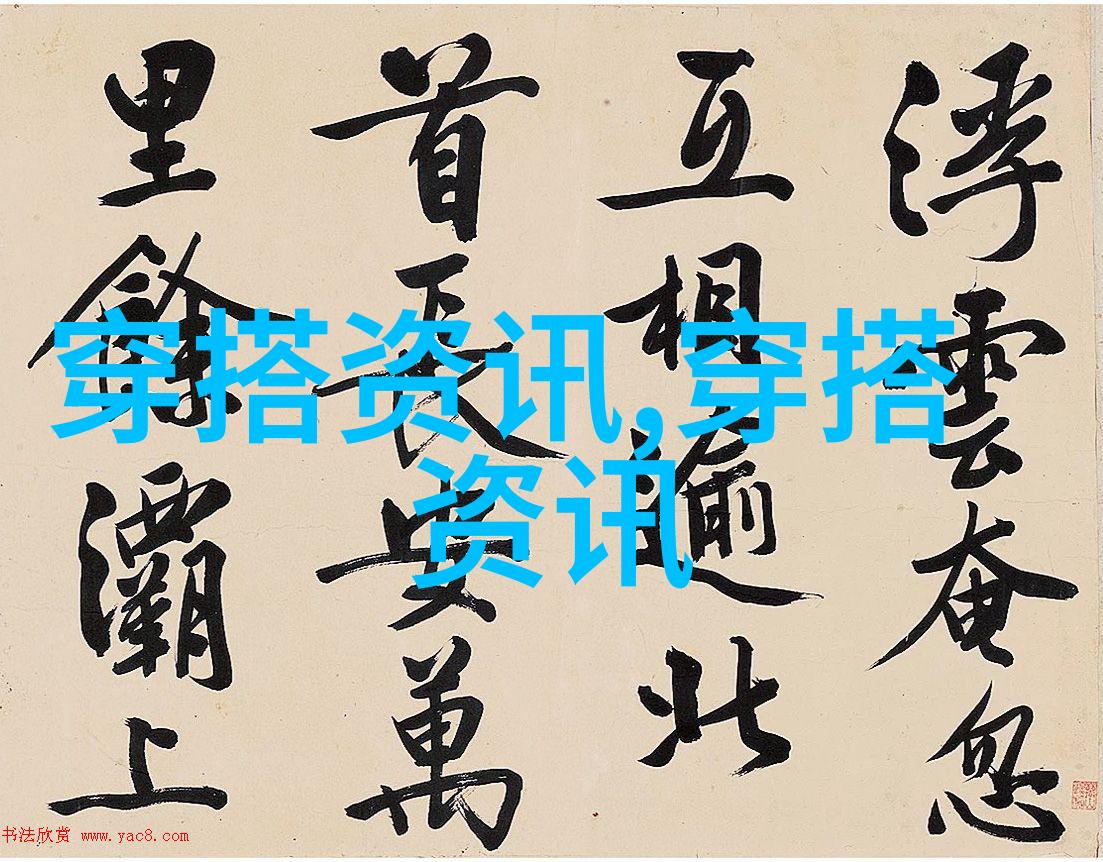 浮雲奄忽
互相逾北
首長安萬
里餘灞上
穿搭资讯,穿搭
资讯
书法欣赏 www.yac8.com